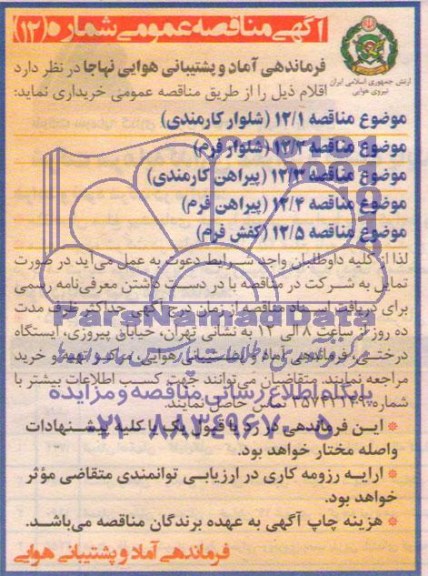 آگهی مناقصه عمومی شماره (۱۲)
ارتش جمهوری اسلامی ایران
نیروی هوایی
فرماندهی آماد و پشتیبانی هوایی نهاجا در نظر دارد
اقلام ذیل را از طریق مناقصه عمومی خریداری نماید:
موضوع مناقصه ۱۲/۱ (شلوار کارمندی)
موضوع مناقصه ۱۲/۲ (شلوار فرم)
موضوع مناقصه ۱۲/۳ (پیراهن کارمندی)
موضوع مناقصه ۱۲/۴ (پیراهن فرم)
موضوع مناقصه ۱۲/۵ (کفش فرم)
لذا از کلیه داوطلبان واجد شرایط دعوت به عمل می‌آید در صورت
تمایل به شرکت در مناقصه با در دست داشتن معرفی‌نامه رسمی
برای دریافت اسناد مناقصه از زمان درج آگهی حداکثر ظرف مدت
ده روز از ساعت ۸ الی ۱۲ به نشانی تهران، خیابان پیروزی، ایستگاه
درختی، فرماندهی آماد و پشتیبانی هوایی، تهیه و خرید
مراجعه نمایند. متقاضیان می‌توانند جهت کسب اطلاعات بیشتر با
شماره تماس حاصل نمایند.
* این فرماندهی در رد یا قبول یک یا کلیه پیشنهادات
واصله مختار خواهد بود.
* ارایه رزومه کاری در ارزیابی توانمندی متقاضی مؤثر
خواهد بود.
* هزینه چاپ آگهی به عهده برندگان مناقصه می‌باشد.
فرماندهی آماد و پشتیبانی هوایی
ParsNamadData
پایگاه اطلاع رسانی مناقصه و مزایده
۰۲۱-۸۸۳۴۹۶۷۰-۵